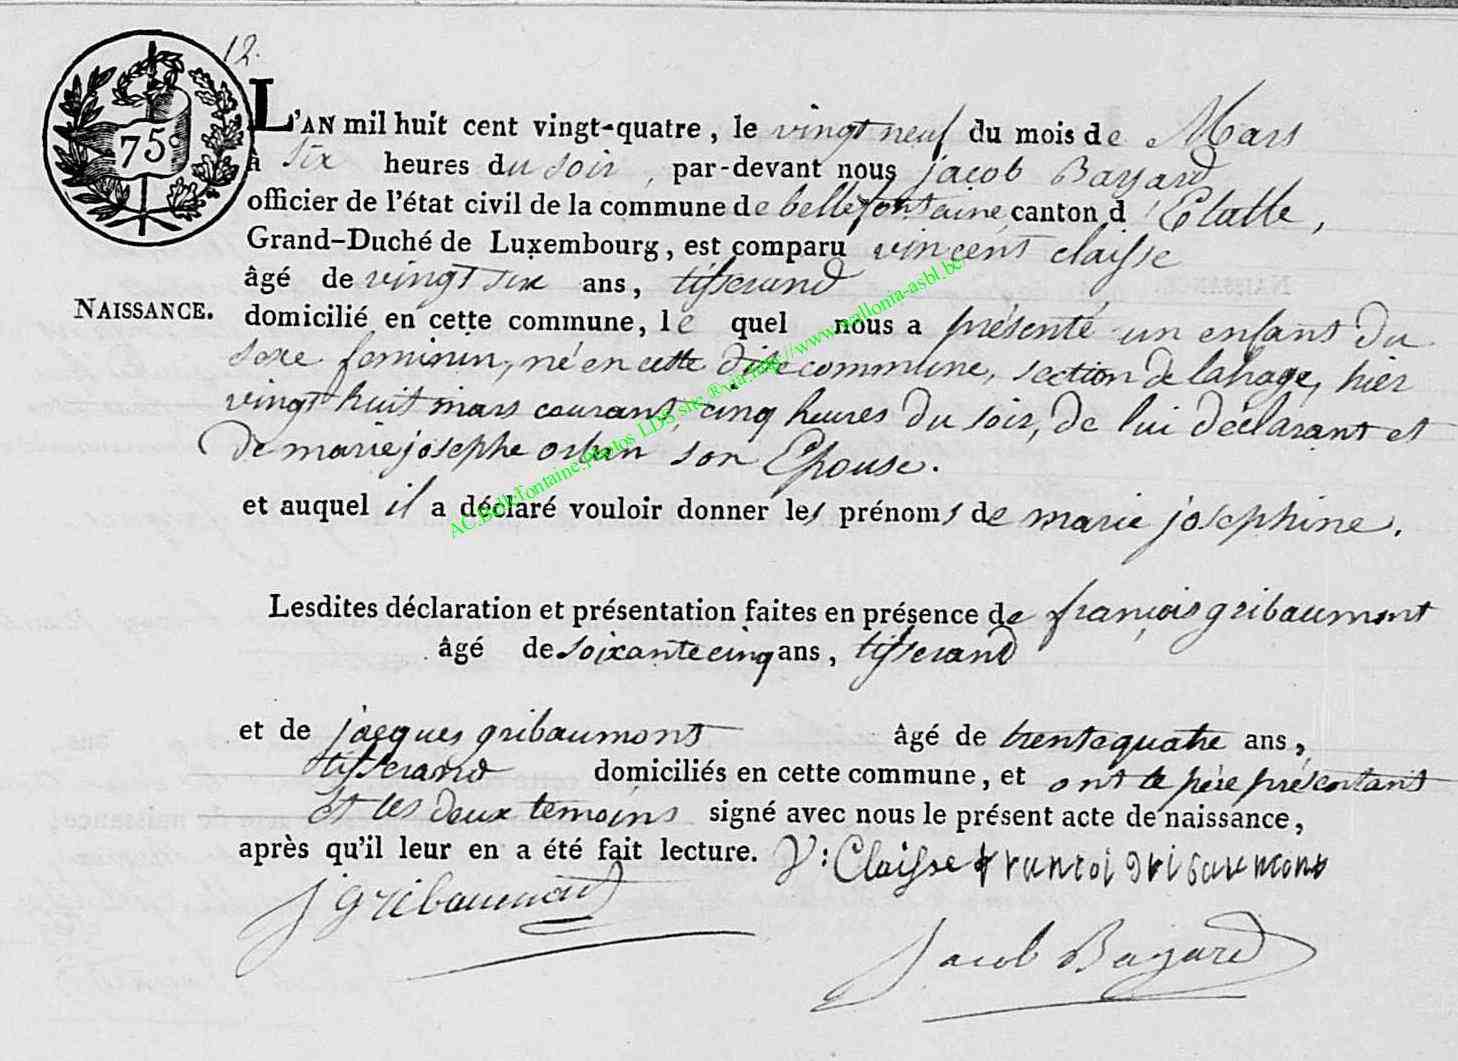 12.
75c
L'AN mil huit cent vingt-quatre, le vingt neuf du mois de Mars
à six heures du soir, par-devant nous jacob Bayard
officier de l'état civil de la commune de bellefontaine canton d'Etalle,
Grand-Duché de Luxembourg, est comparu vincent claisse
âgé de vingt six ans, tisserand
NAISSANCE.
domicilié en cette commune, le quel nous a présenté un enfant du
sexe feminin, né en cette dite commune, section de lahage, hier
vingt huit mars courant cinq heures du soir, de lui déclarant et
De marie josephe orban son Epouse.
et auquel il a déclaré vouloir donner les prénoms de marie josephine.
Lesdites déclaration et présentation faites en présence de françois gribaumont
âgé de soixante cinq ans, tisserand
et de jacques gribaumont âgé de trente quatre ans,
tisserand domiciliés en cette commune, et ont le père présentant
et les deux temoins signé avec nous le présent acte de naissance,
après qu'il leur en a été fait lecture. V: Claisse francoi gribaumont
J gribaumont
Jacob Bayard